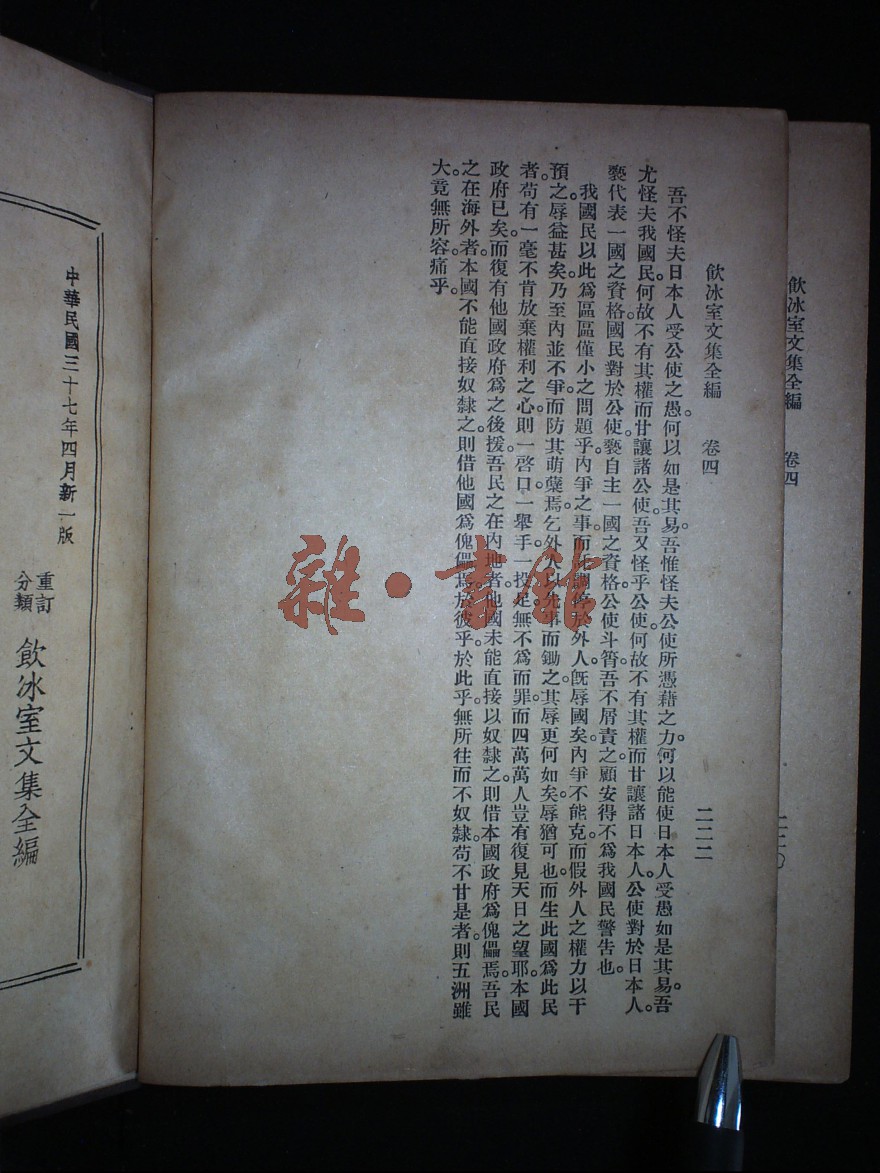 飲冰室文集全編 卷四 二二〇
飲冰室文集全編 卷四 二二二
吾不怪夫日本人受公使之愚。何以如是其易。吾惟怪夫公使所憑藉之力。何以能使日本人受愚如是其易。吾
尤怪夫我國民何故不有其權而甘讓諸公使。吾又怪乎公使何故不有其權而甘讓諸日本人。公使對於日本人。
褻代表一國之資格。國民對於公使。褻自主一國之資格。公使斗筲。吾不屑責之。顧安得不爲我國民警告也。
我國民以此爲區區僅小之問題乎。內爭之事。而乞調停於外人。旣辱國矣。內爭不能克。而假外人之權力以干
預之。辱益甚矣。乃至內並不爭。而防其萌孽焉。乞外人以先事而鋤之。其辱更何如矣。辱猶可也。而生此國爲此民
者。苟有一毫不肯放棄權利之心。則一啓口一舉手一投足無不爲而罪。而四萬萬人豈有復見天日之望耶。本國
政府已矣。而復有他國政府爲之後援。吾民之在內地者。他國未能直接以奴隸之。則借本國政府爲傀儡焉。吾民
之在海外者。本國不能直接奴隸之。則借他國爲傀儡焉。於彼乎於此乎。無所往而不奴隸。苟不甘是者。則五洲雖
大。竟無所容。痛乎。
中華民國三十七年四月新一版
重訂
分類
飲冰室文集全編
雜·書館